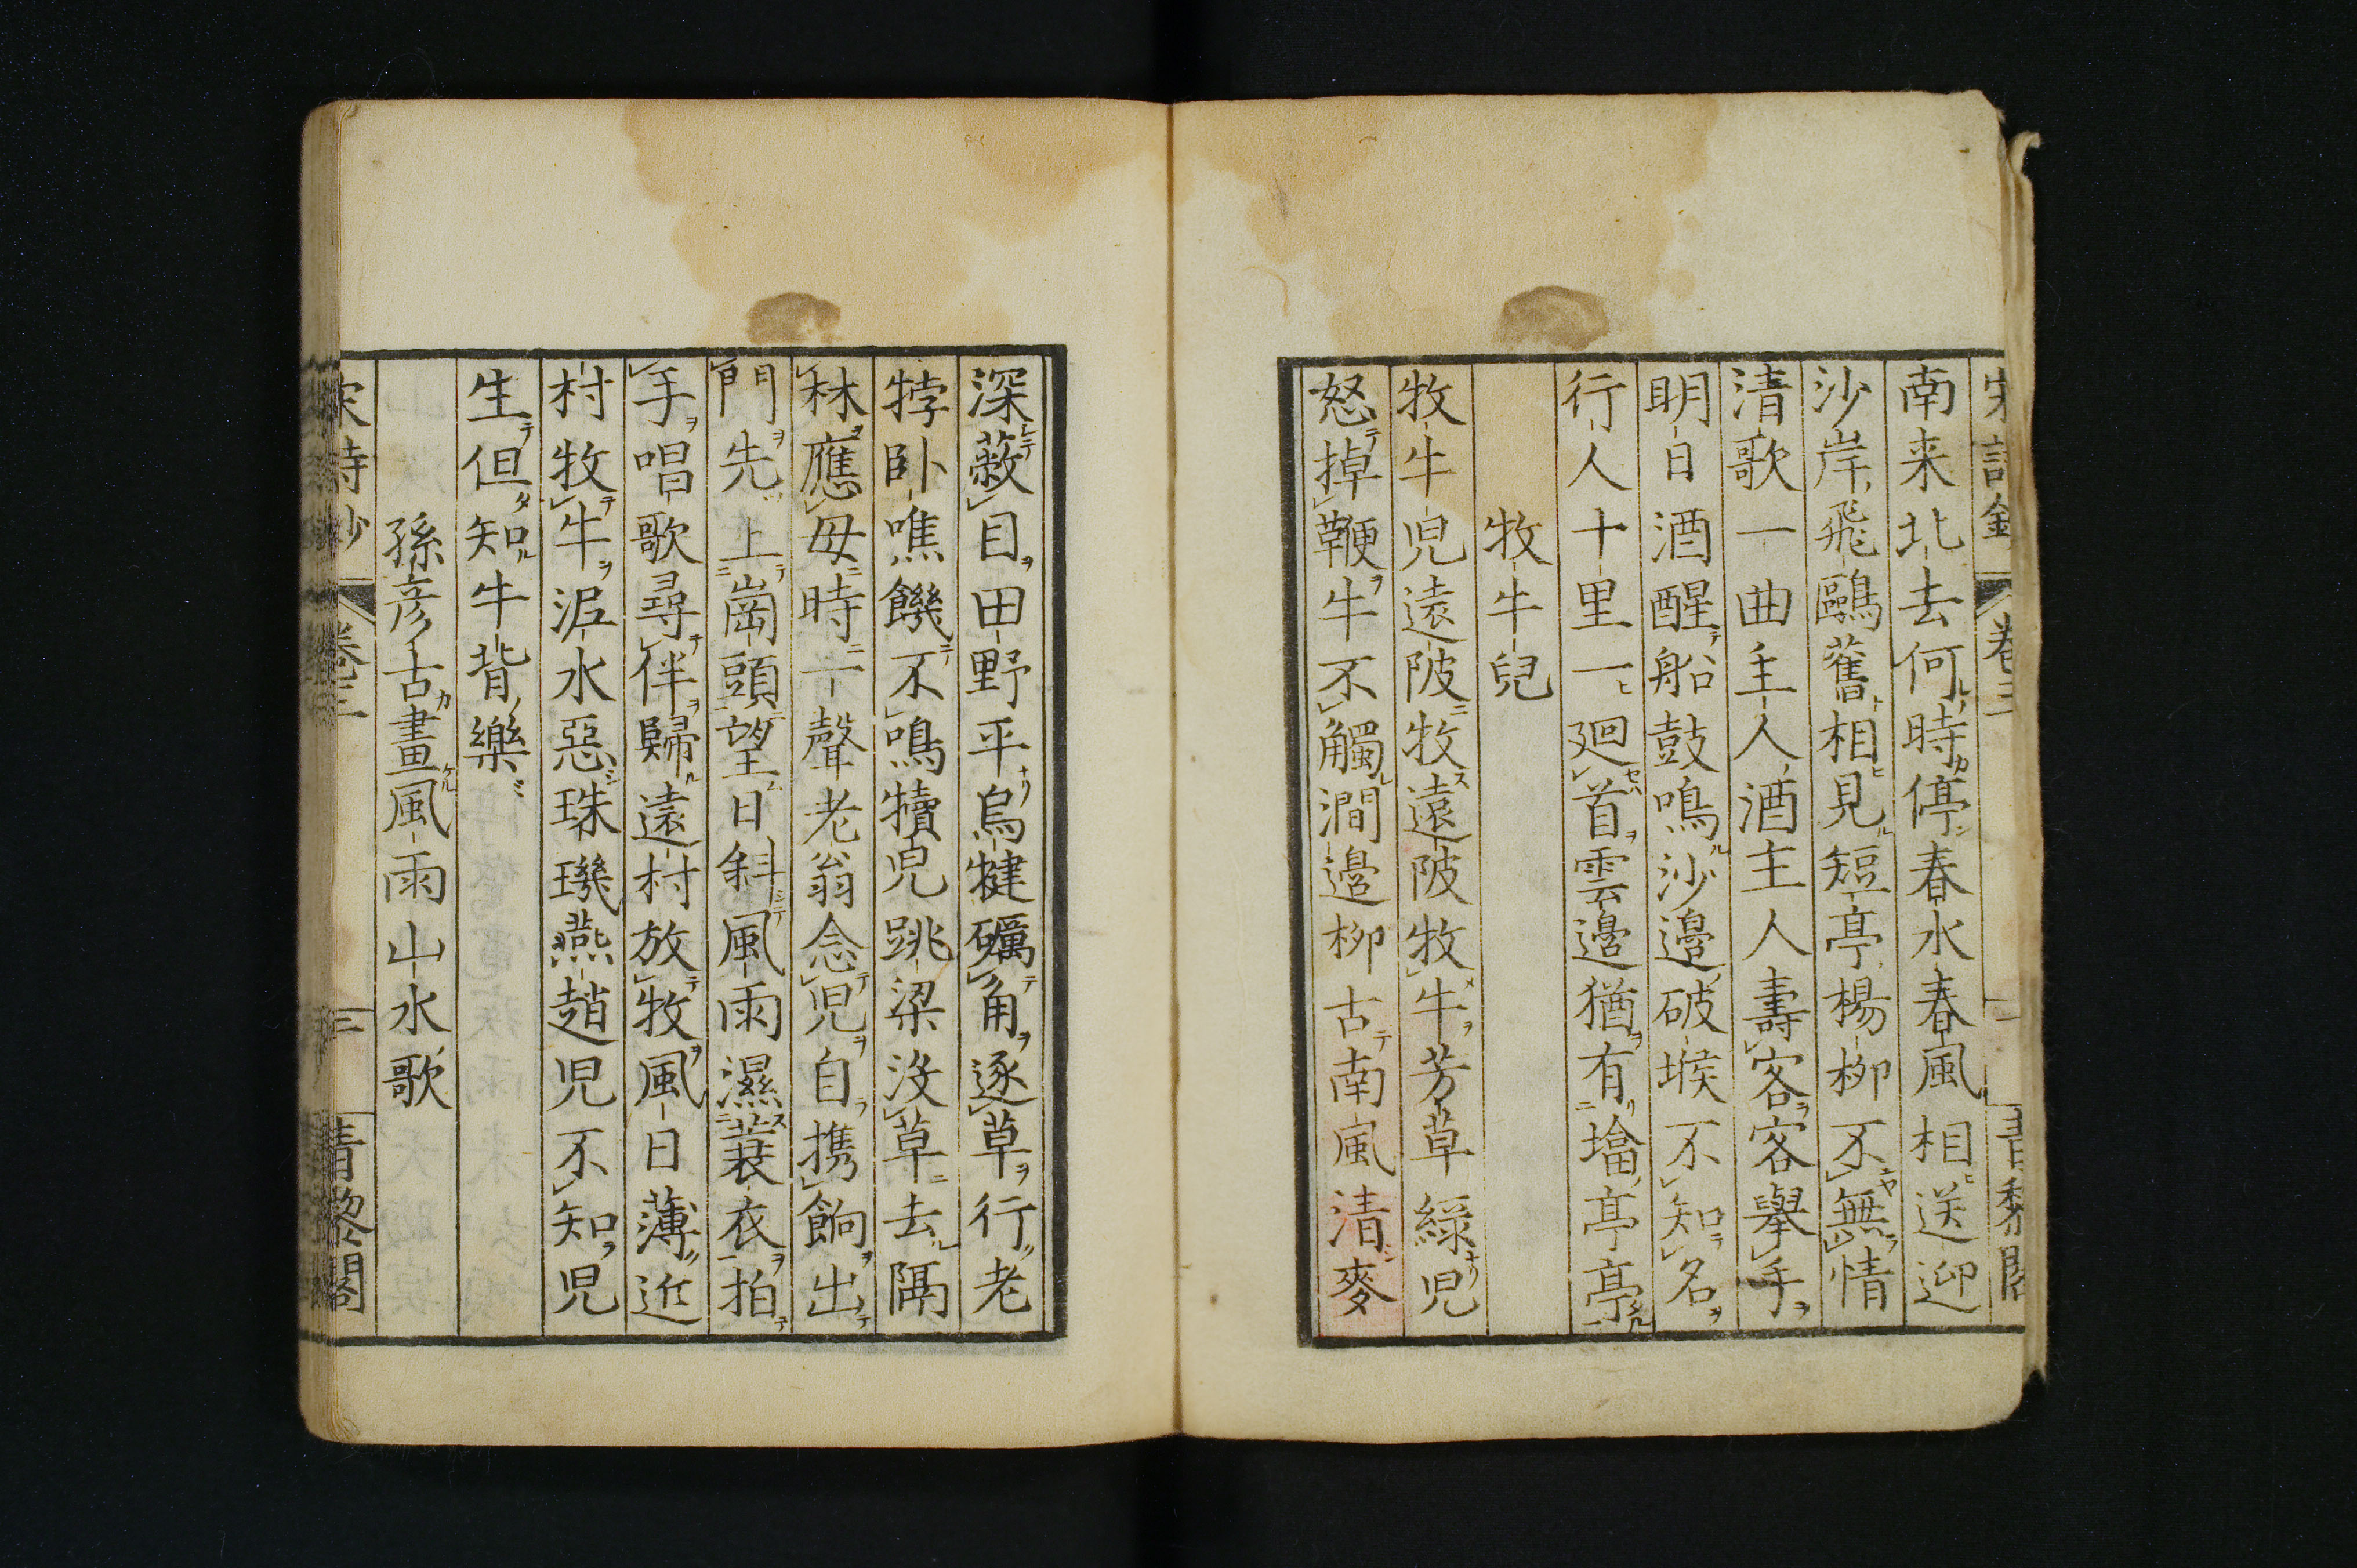 南来北去何時停春水春風相送迎
沙岸飛鷗舊相見短亭楊柳不無情
清歌一曲主人酒主人壽客客舉手
明日酒醒船鼓鳴沙邉破堠不知名
行人十里一廻首雲邉猶有墖亭亭
牧牛兒
牧牛児遠陂牧遠陂牧牛芳草緑児
怒掉鞭牛不觸澗邉栁古南風清麥
深蔽目田野平烏犍礪角逐草行老
牸卧噍饑不鳴犢児跳梁没草去隔
林應母時一聲老翁念児自携餉出
門先上崗頭望日斜風雨濕蓑衣拍
手唱歌尋伴歸遠村放牧風日薄近
村牧牛泥水惡珠璣燕趙児不知児
生但知牛背樂
孫彦古畫風雨山水歌
宋詩鈔 卷三 三 青黎閣